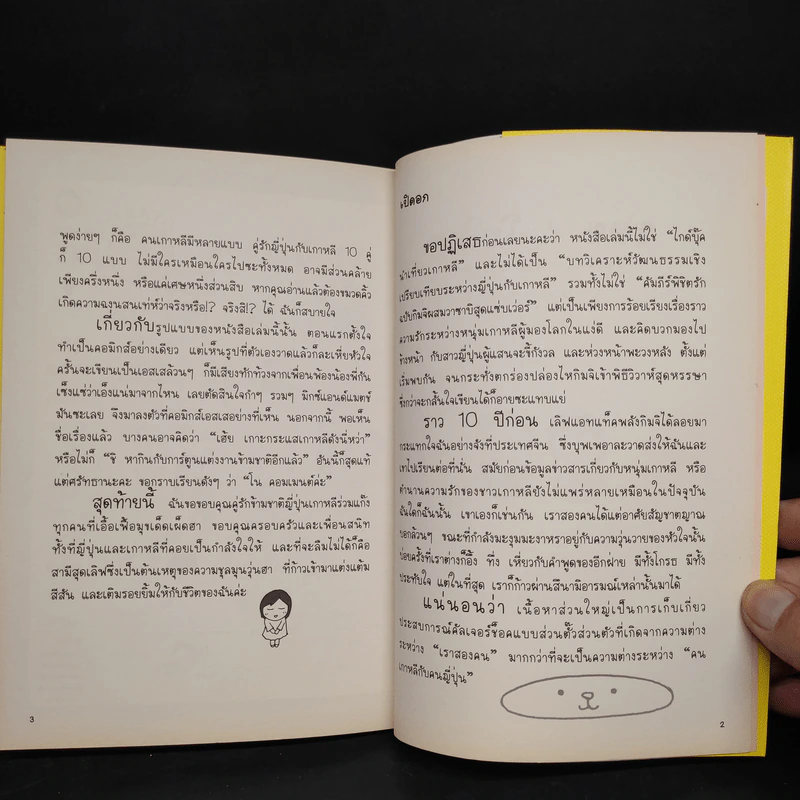 เปิดอก
ขอปฏิเสธก่อนเลยนะคะว่า หนังสือเล่มนี้ไม่ใช่ “ไกด์บุ๊ค
นำเที่ยวเกาหลี” และไม่ได้เป็น “บทวิเคราะห์วัฒนธรรมเชิง
เปรียบเทียบระหว่างญี่ปุ่นกับเกาหลี” รวมทั้งไม่ใช่ “คัมภีร์พิชิตรัก
ฉบับกิมจิผสมวาซาบิสุดแซ่บเว่อร์” แต่เป็นเพียงการร้อยเรียงเรื่องราว
ความรักระหว่างหนุ่มเกาหลีผู้มองโลกในแง่ดี และคิดบวกมองไป
ข้างหน้า กับสาวญี่ปุ่นผู้แสนจะขี้กังวล และห่วงหน้าพะวงหลัง ตั้งแต่
เริ่มพบกัน จนกระทั่งตกร่องปล่องไหกิมจิเข้าพิธีวิวาห์สุดหรรษา
ซึ่งกว่าจะกลั้นใจเขียนได้ก็อายซะแทบแย่
ราว 10 ปีก่อน เลิฟแอทแท็คพลังกิมจิได้ลอยมา
กระแทกใจฉันอย่างจังที่ประเทศจีน ซึ่งบุพเพอาละวาดส่งให้ฉันและ
เขาไปเรียนต่อที่นั่น สมัยก่อนข้อมูลข่าวสารเกี่ยวกับหนุ่มเกาหลี หรือ
ตำนานความรักของชาวเกาหลียังไม่แพร่หลายเหมือนในปัจจุบัน
ฉันใดก็ฉันนั้น เขาเองก็เช่นกัน เราสองคนได้แต่อาศัยสัญชาตญาณ
บอกล้วนๆ ขณะที่กำลังมะงุมมะงาหราอยู่กับความวุ่นวายของหัวใจนั้น
บ่อยครั้งที่เราต่างก็อึ้ง ทึ่ง เหี่ยวกับคำพูดของอีกฝ่าย มีทั้งโกรธ มีทั้ง
ประทับใจ แต่ในที่สุด เราก็ก้าวผ่านสึนามิอารมณ์เหล่านั้นมาได้
แน่นอนว่า เนื้อหาส่วนใหญ่เป็นการเก็บเกี่ยว
ประสบการณ์คัลเจอร์ช็อคแบบส่วนตั๊วส่วนตัวที่เกิดจากความต่าง
ระหว่าง “เราสองคน” มากกว่าที่จะเป็นความต่างระหว่าง “คน
เกาหลีกับคนญี่ปุ่น”
2
พูดง่ายๆ ก็คือ คนเกาหลีมีหลายแบบ คู่รักญี่ปุ่นกับเกาหลี 10 คู่
ก็ 10 แบบ ไม่มีใครเหมือนใครไปซะทั้งหมด อาจมีส่วนคล้าย
เพียงครึ่งหนึ่ง หรือแค่เศษหนึ่งส่วนสิบ หากคุณอ่านแล้วต้องขมวดคิ้ว
เกิดความฉงนสนเท่ห์ว่าจริงหรือ!? จริงสิ!? ได้ ฉันก็สบายใจ
เกี่ยวกับรูปแบบของหนังสือเล่มนี้นั้น ตอนแรกตั้งใจ
ทำเป็นคอมิกส์อย่างเดียว แต่เห็นรูปที่ตัวเองวาดแล้วก็ละเหี่ยหัวใจ
ครั้นจะเขียนเป็นเอสเสล้วนๆ ก็มีเสียงทักท้วงจากเพื่อนพ้องน้องพี่กัน
เซ็งแซ่ว่าเอ็งแน่มาจากไหน เลยตัดสินใจกำๆ รวมๆ มิกซ์แอนด์แมตช์
มันซะเลย จึงมาลงตัวที่คอมิกส์เอสเสอย่างที่เห็น นอกจากนี้ พอเห็น
ชื่อเรื่องแล้ว บางคนอาจคิดว่า “เฮ้ย เกาะกระแสเกาหลีดังนี่หว่า”
หรือไม่ก็ “ชิ หากินกับการ์ตูนแต่งงานข้ามชาติอีกแล้ว” อันนี้ก็สุดแท้
แต่ศรัทธานะคะ ขอกราบเรียนดังๆ ว่า “โน คอมเมนต์ค่ะ”
สุดท้ายนี้ ฉันขอขอบคุณคู่รักข้ามชาติญี่ปุ่นเกาหลีร่วมแก๊ง
ทุกคนที่เอื้อเฟื้อมุขเด็ดเผ็ดฮา ขอบคุณครอบครัวและเพื่อนสนิท
ทั้งที่ญี่ปุ่นและเกาหลีที่คอยเป็นกำลังใจให้ และที่จะลืมไม่ได้ก็คือ
สามีสุดเลิฟซึ่งเป็นต้นเหตุของความชุลมุนวุ่นฮา ที่ก้าวเข้ามาแต่งแต้ม
สีสัน และเติมรอยยิ้มให้กับชีวิตของฉันค่ะ
3